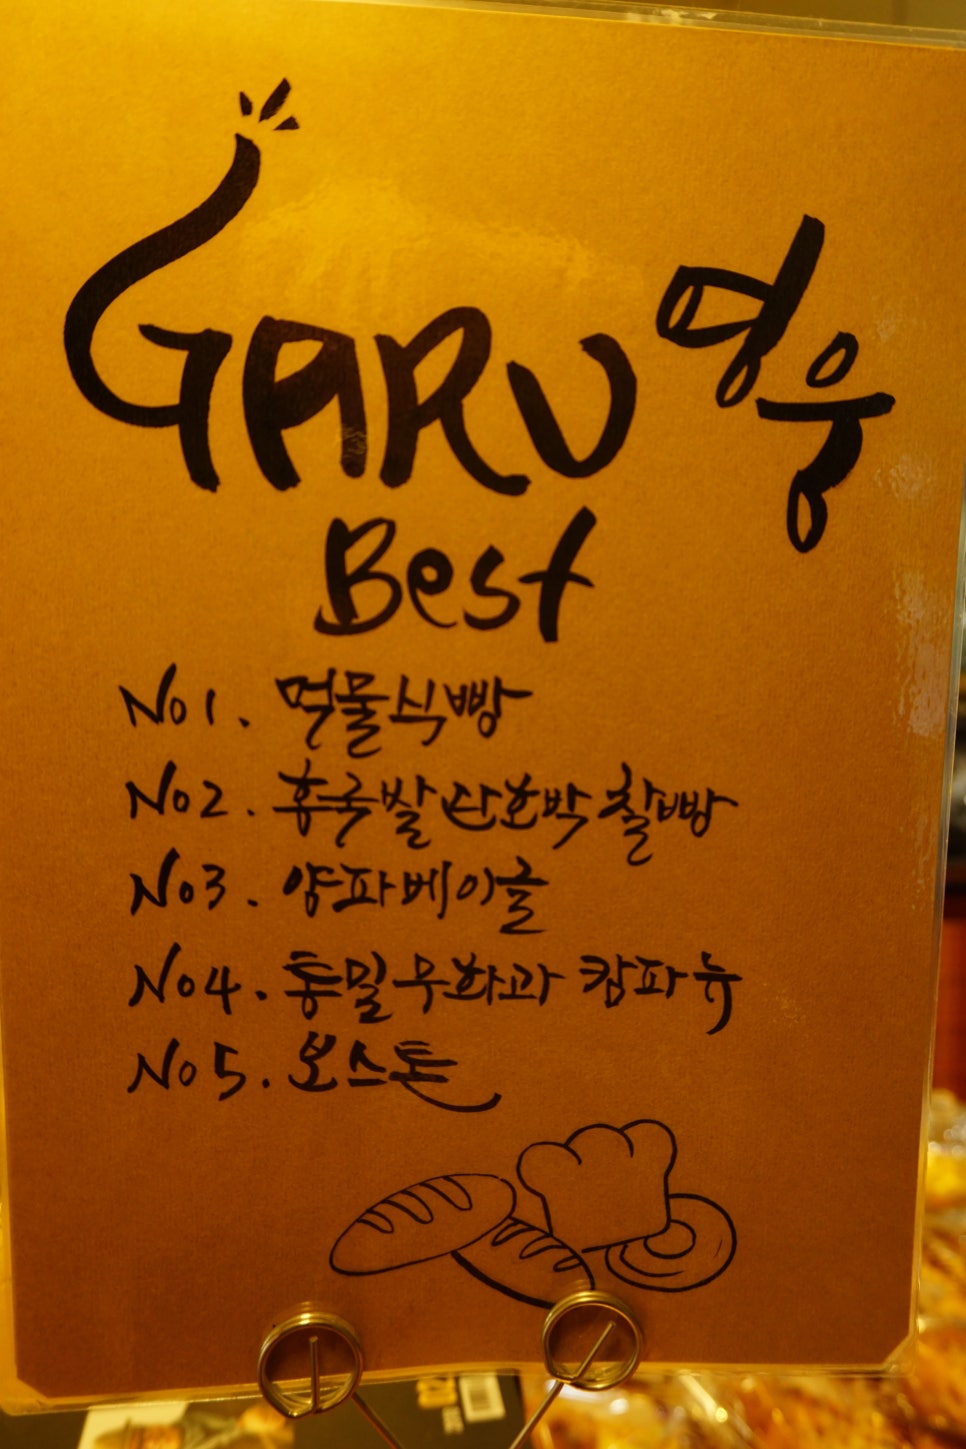 GARU 영웅
Best
No1. 먹물식빵
No2. 홍국쌀단호박찰빵
No3. 양파베이글
No4. 통밀무화과 캄파뉴
No5. 보스톤